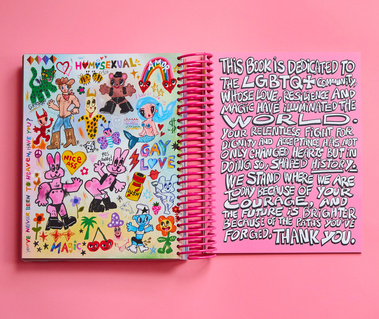 HOMOSEXUAL
AMOR
GAY
LOVE
NICE
MAGIC
THIS BOOK IS DEDICATED TO
THE LGBTQ+ COMMUNITY,
WHOSE LOVE, RESILIENCE AND
MAGIC HAVE ILLUMINATED THE
WORLD.
YOUR RELENTLESS FIGHT FOR
DIGNITY AND ACCEPTANCE HAS NOT
ONLY CHANGED HEARTS BUT IN
DOING SO, SHAPED HISTORY.
WE STAND WHERE WE ARE
TODAY BECAUSE OF YOUR
COURAGE, AND
THE FUTURE IS BRIGHTER
BECAUSE OF THE PATHS YOU'VE
FORGED. THANK YOU.